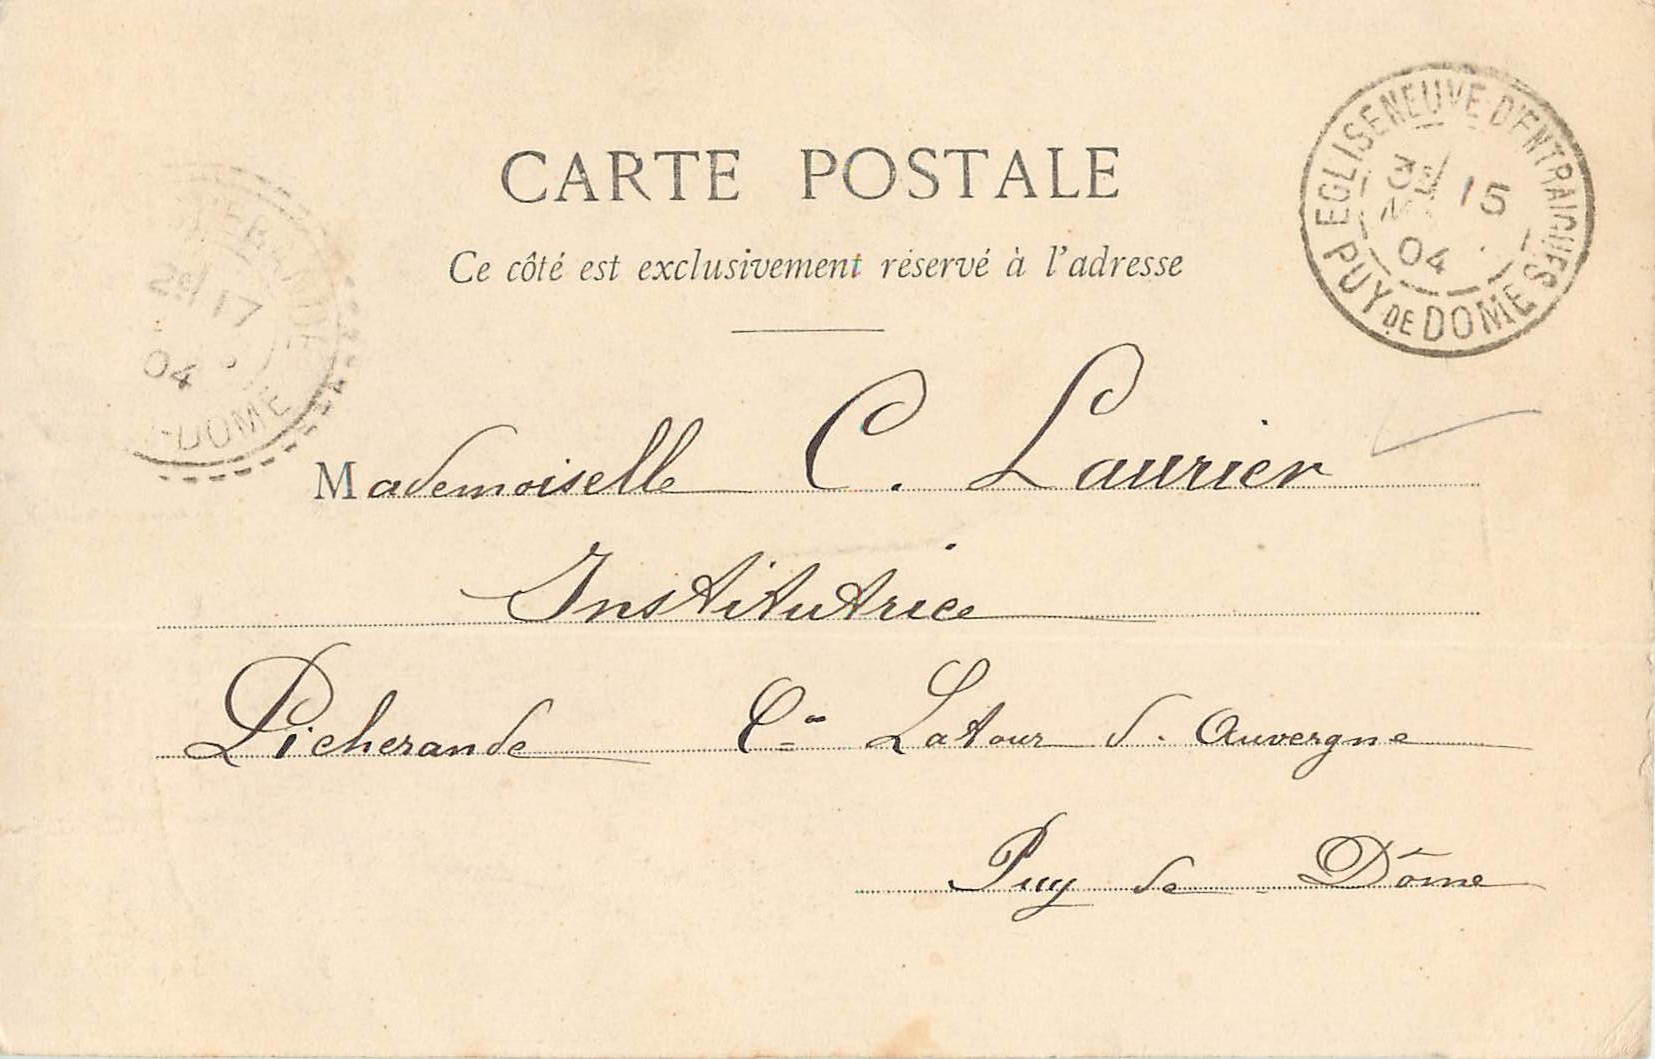 CARTE POSTALE
Ce côté est exclusivement réservé à l'adresse
EGLISENEUVE-D'ENTRAIGUES
3E/15
04
PUY DE DOME
2E/17
04
DOME
Mademoiselle C. Laurier
Institutrice
Picherande Con Latour d. Auvergne
Puy de Dôme